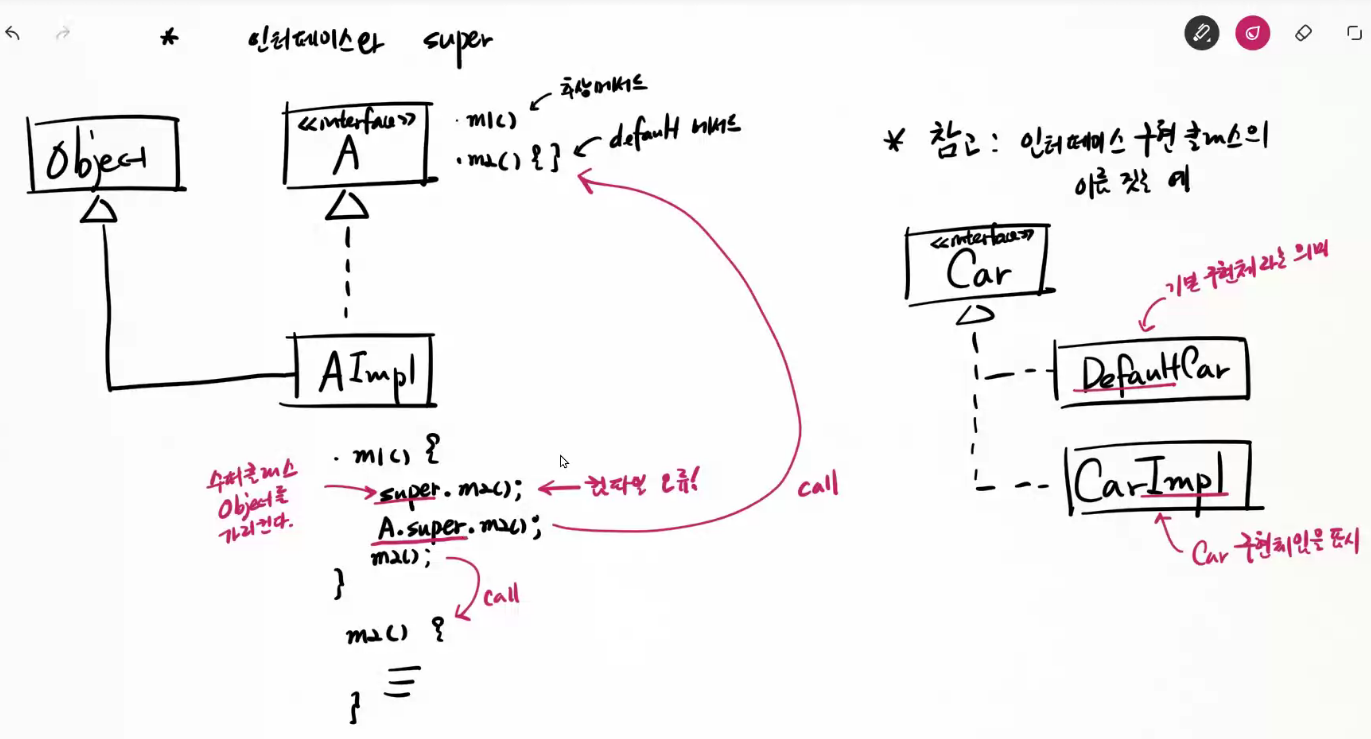 * 인터페이스와 super
Object
<<interface>>
A
· m1() ← 추상메서드
· m2() { } ← default 메서드
AImpl
· m1() {
super.m2(); ← 컴파일 오류!
A.super.m2();
m2();
}
m2() {
}
수퍼클래스
Object를
가리킨다.
call
call
* 참고: 인터페이스 구현 클래스의
이름 짓는 예
<<interface>>
Car
기본 구현체라는 의미
DefaultCar
CarImpl
Car 구현체임을 표시